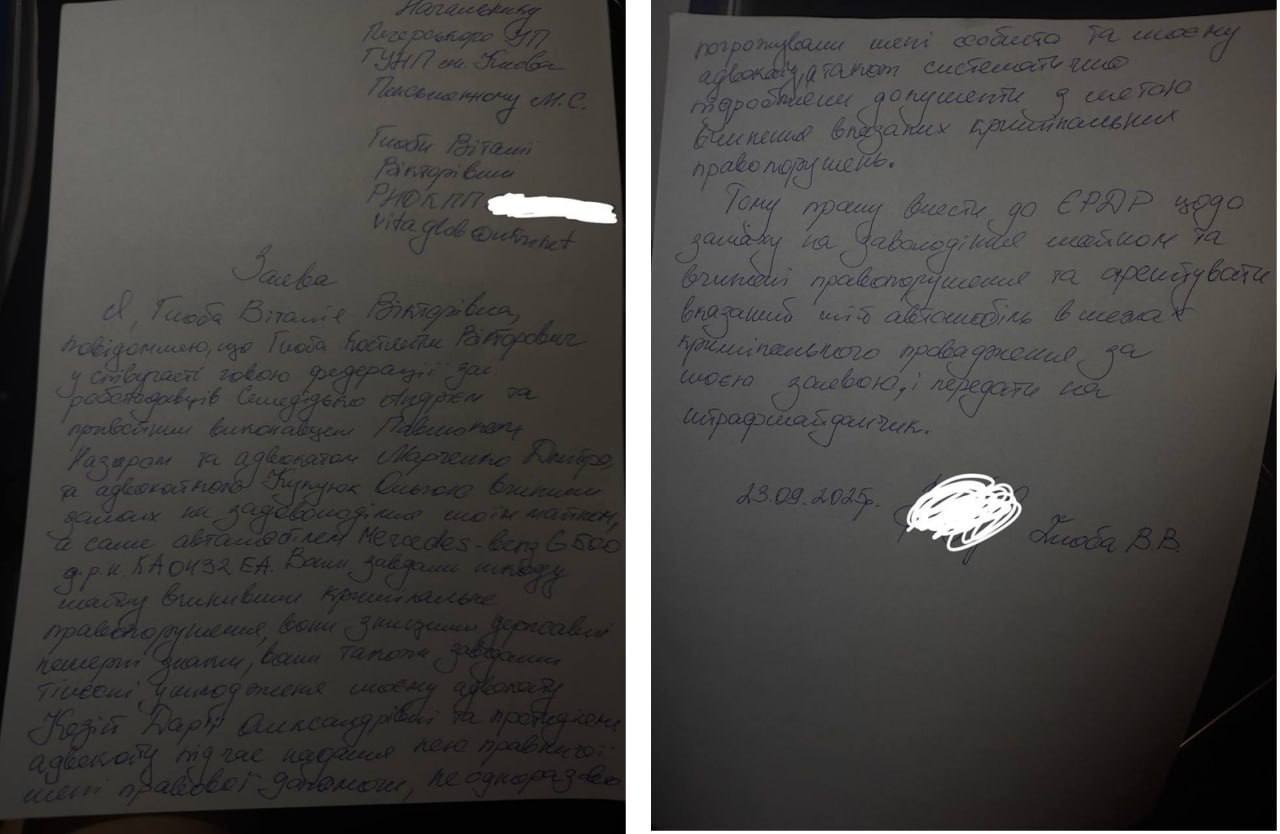 Начальнику
Печерського УП
ГУНП в м. Києві
Письменному М.С.
Глоби Віталії
Вікторівни
РНОКПП
vitaglob@ukr.net
Заява
Я, Глоба Віталія Вікторівна,
повідомляю, що Глоба Костянтин Вікторович
у співучасті головою федерації
роботодавців Андрієм та
приватним виконавцем
Назаром та адвокатом Марченко Дмитро,
та адвокаткою Кукуюк Ольгою вчинили
замах на заволодіння моїм майном,
а саме автомобілем Mercedes-benz G500
д.р.н КА0432ЕА. Вони завдали шкоду
майну вчинивши кримінальне
правопорушення, вони знищили державні
номерні знаки, вони також завдали
тілесні ушкодження моєму адвокату
Козій Дар'ї Олександрівні та протидіяли
адвокату під час надання нею правничої
мені правової допомоги, неодноразово
погрожували мені особисто та моєму
адвокату, а також систематично
підроблюючи документи з метою
вчинення вказаних кримінальних
правопорушень.
Тому прошу внести до ЄРДР щодо
замаху на заволодіння майном та
вчинені правопорушення та арештувати
вказаний мій автомобіль в межах
кримінального провадження за
моєю заявою, і передати на
штрафмайданчик.
23.09.2025р.
Глоба В.В.